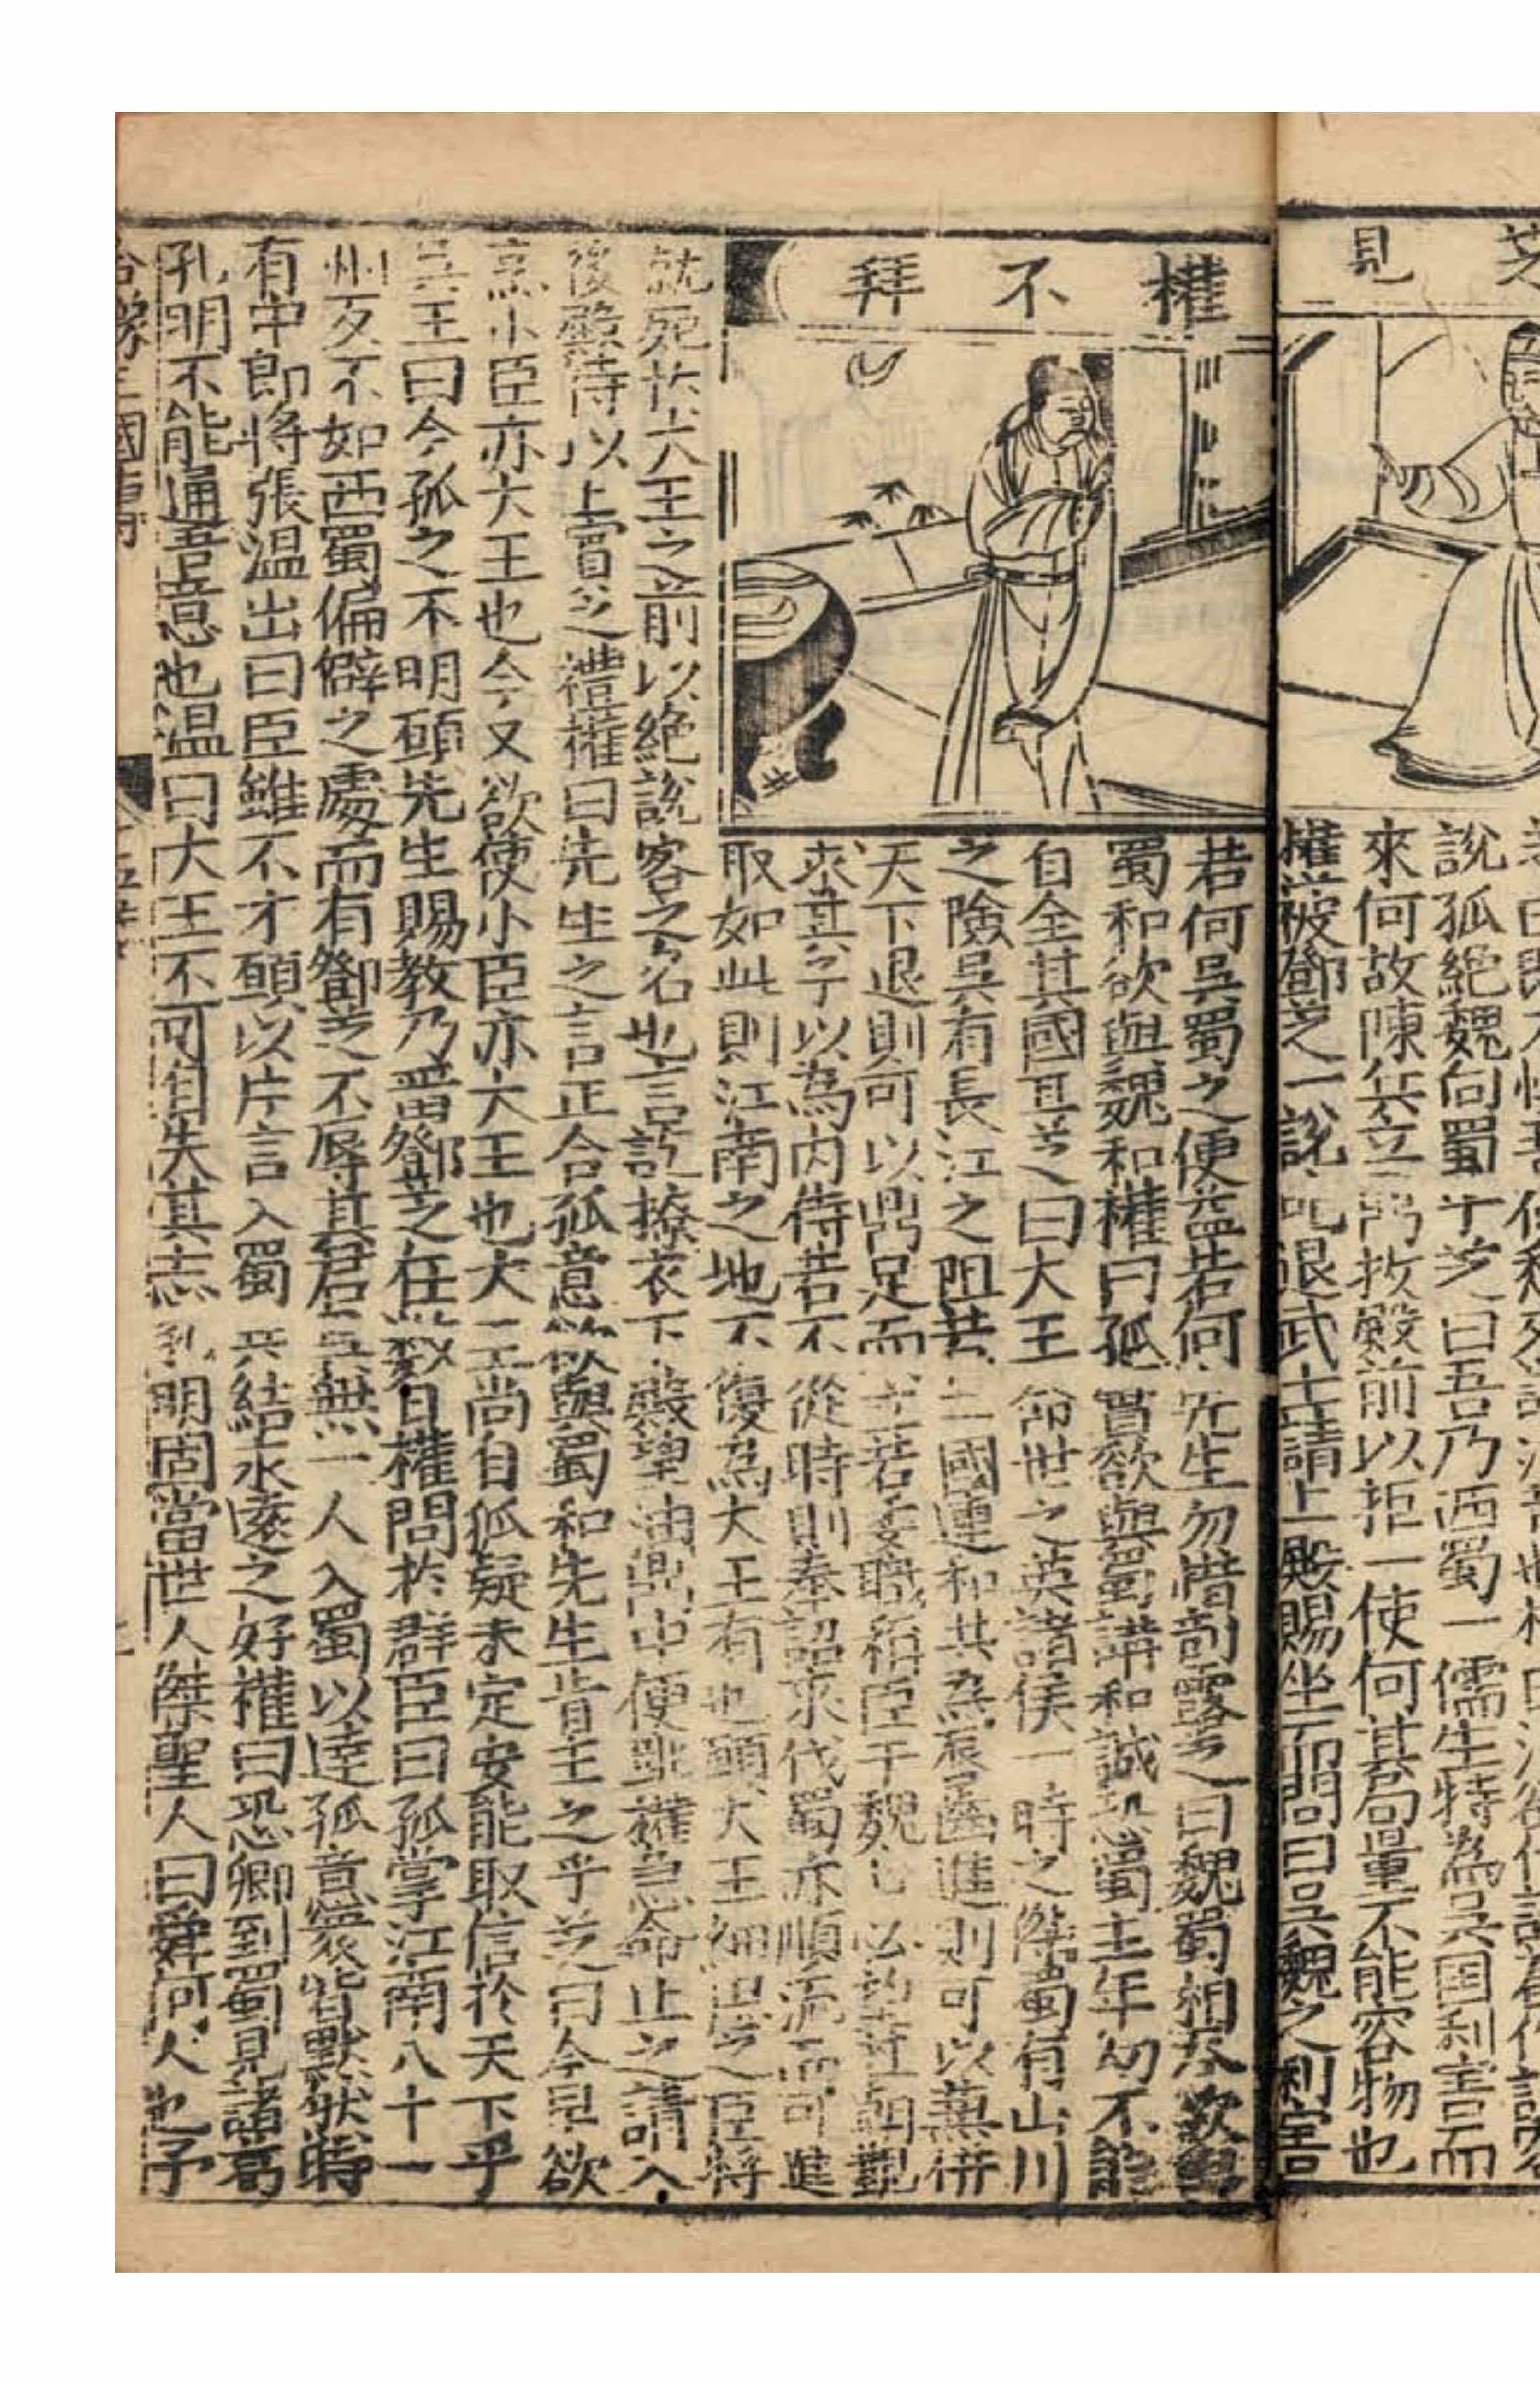 見
說孤絶魏向蜀乎芝曰吾乃西蜀一儒生特為吳国利害而
來何故陳兵立鼎於殿前以拒一使何其局量不能容物也
權被鄧芝一說叱退武士請上殿賜坐而問曰吳魏之利害
權不拜
若何吳蜀之便益若何先生勿惜剖露芝曰魏蜀相忝欲與
蜀和欲與魏和權曰孤實欲與蜀講和誠恐蜀主年幼不能
自全其國耳芝曰大王命世之英諸侯一時之傑蜀有山川
之險吳有長江之阻若二國連和共為唇齒進則可以兼併
天下退則可以鼎足而立若委職稱臣于魏必望在朝覲
求其子以為内侍若不從時則奉詔求伐蜀亦順流而可進
取如此則江南之地不復為大王有也願大王細思之臣將
就死於大王之前以絶說客之名也言訖撩衣下殿望油鼎中便跳權急命止之請入
後殿待以上賓之禮權曰先生之言正合孤意欲與蜀和先生肯主之乎芝曰今早欲
烹小臣亦大王也今又欲使小臣亦大王也大王尚自狐疑未定安能取信於天下乎
吳王曰今孤之不明願先生賜教乃畱鄧芝在數日權問於群臣曰孤掌江南八十一
州反不如西蜀偏僻之處而有鄧芝不辱其君吳無一人入蜀以達孤意衆皆默然時
有中郎將張温出曰臣雖不才願以片言入蜀共結永遠之好權曰恐卿到蜀見諸葛
孔明不能通吾意也温曰大王不可自失其志孔明固當世人傑聖人曰舜何人也予
三國